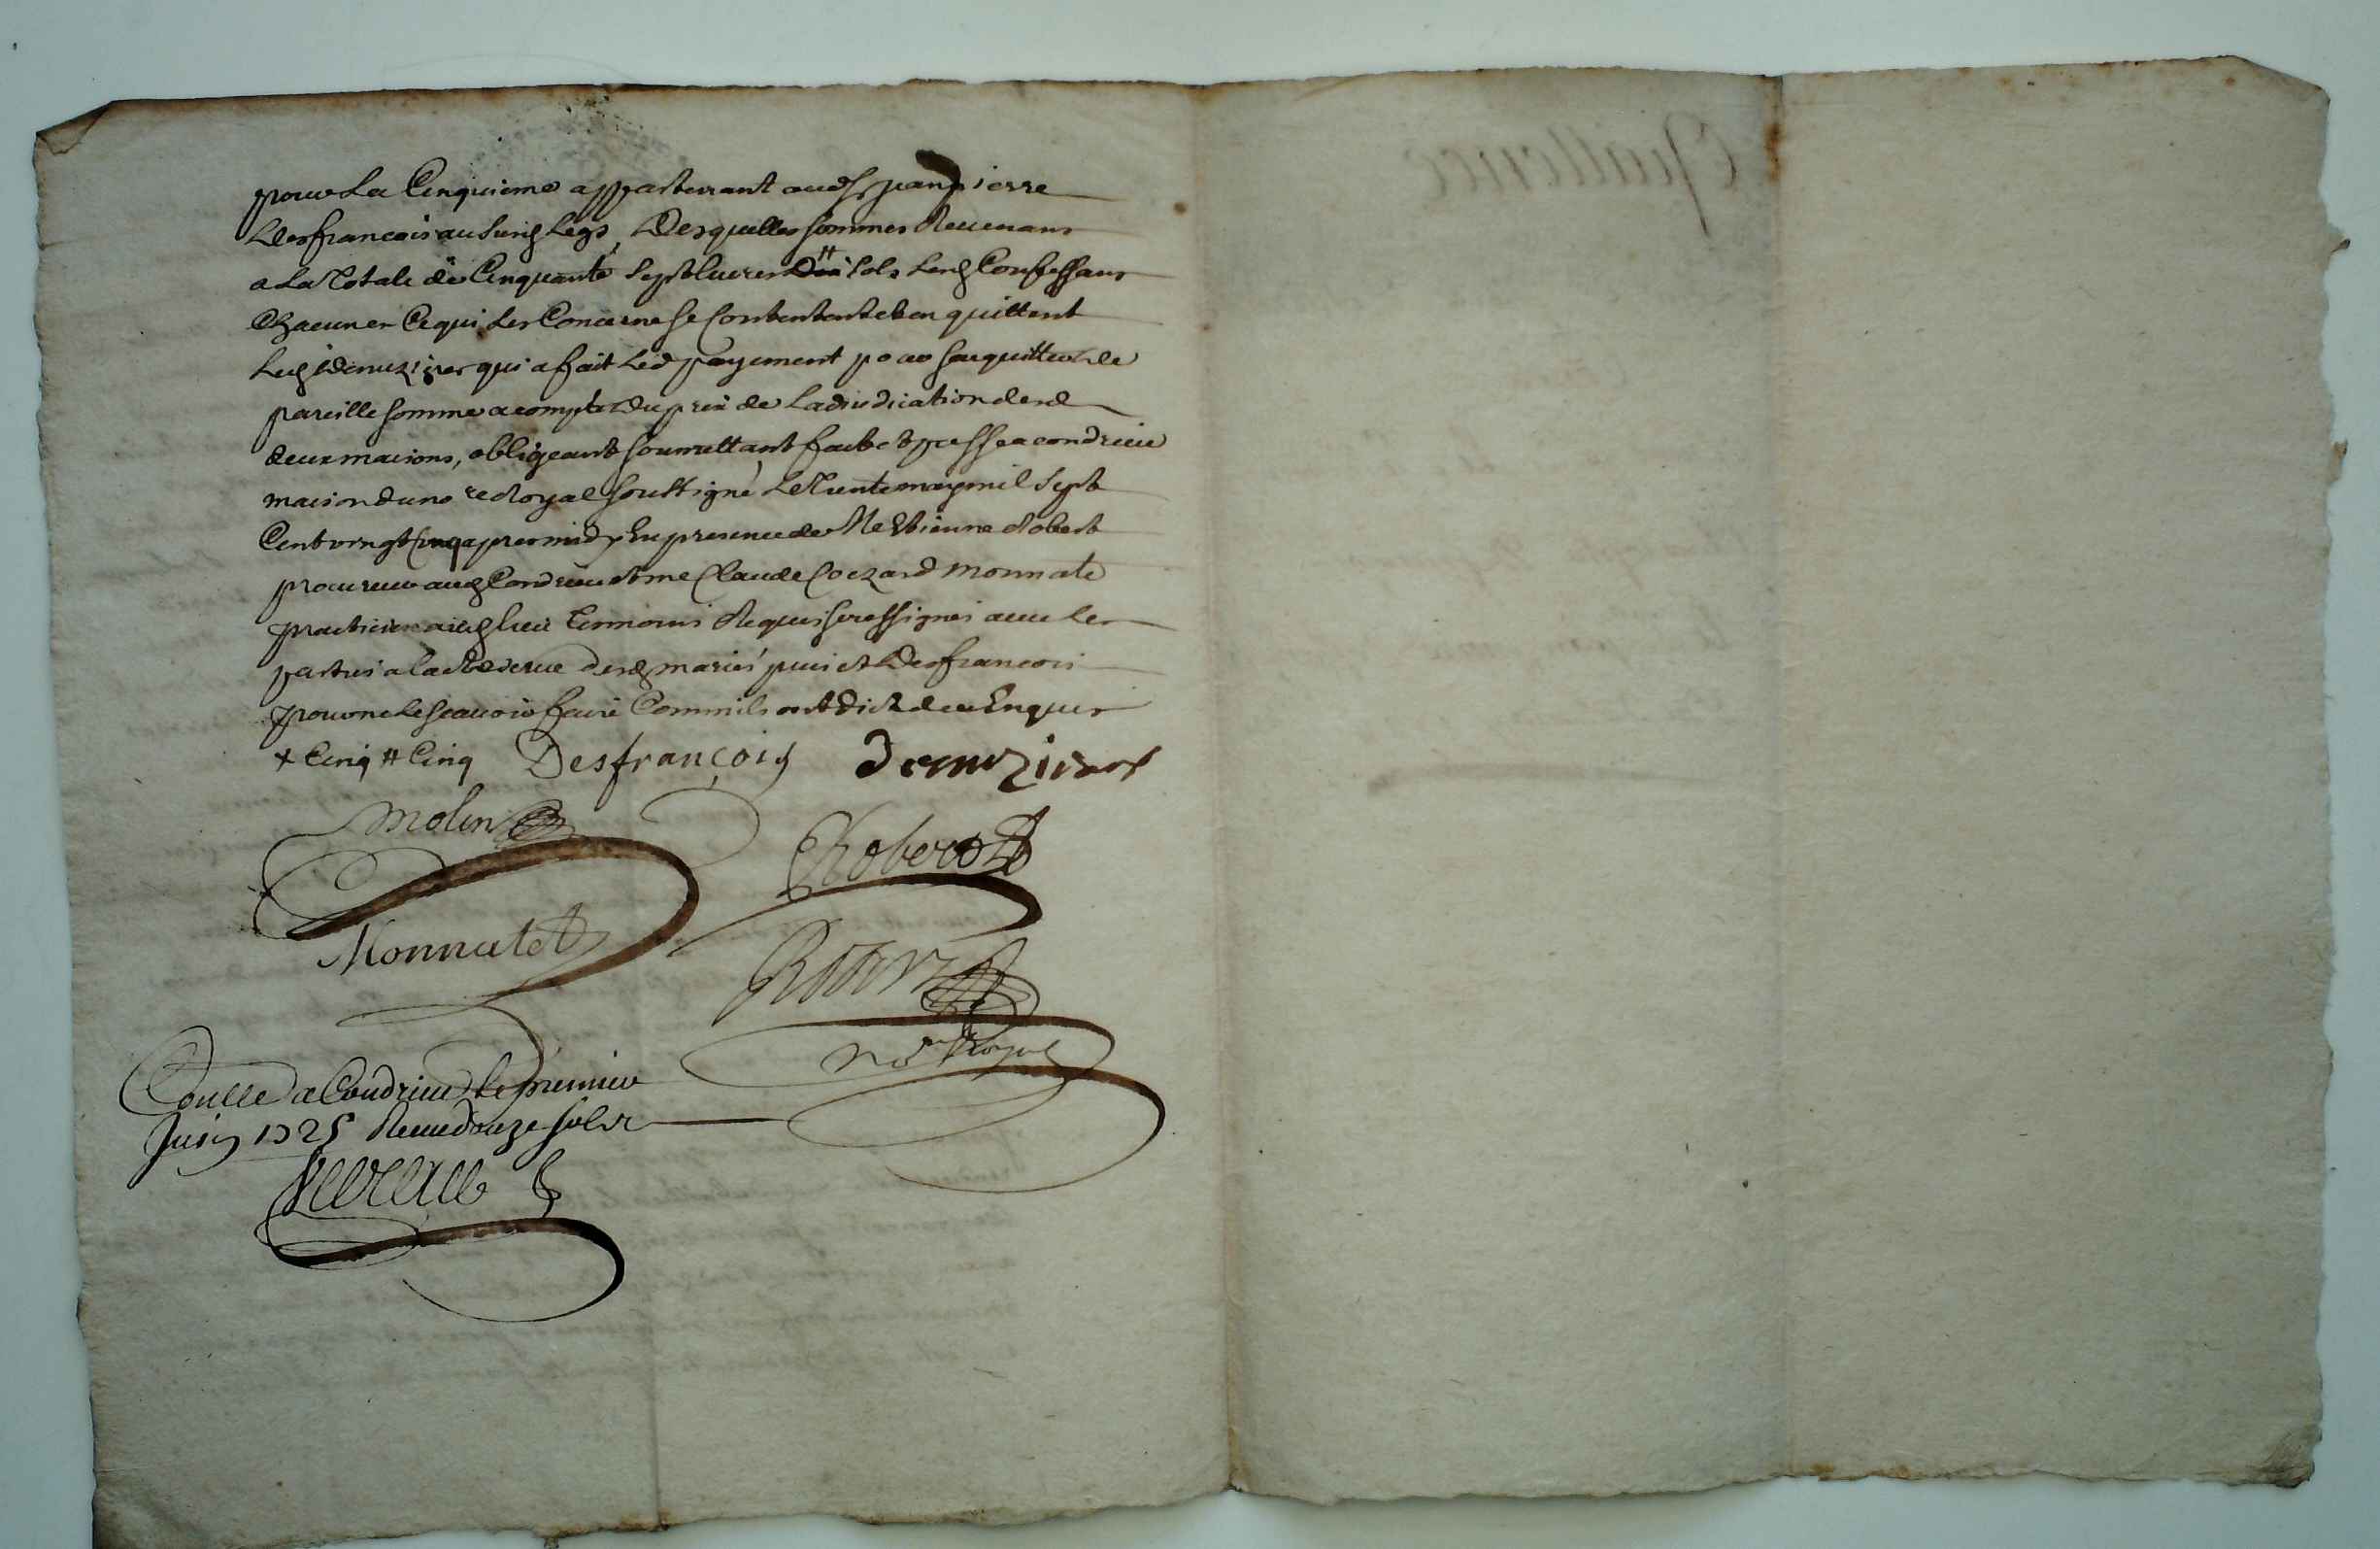 pour la Cinquieme appartenant aud Sr Jean pierre
Desfrancois audit legs, Desquelles sommes Revenans
a la Totale de Cinquante sept livres Dix # sols lesd Confessans
Chacun en Ce qui les Concerne se Contentent et en quittent
led Demuzieres qui a fait led payement pour saquitter de
pareille somme a compte du prix de ladiudication desd
deux maisons, obligeant soumettant fait et passé a condrieu
maison du no re Royal soussigné le Trente may mil sept
Cent vingt Cinq apres midy En presence de Me Etienne Robert
procureur aud Condrieu et me Claude Monnate
praticien aud lieu Temoins Requis soussignes avec les
parties a la Reserve desd mariés et Desfrancois
pour ne le scavoir faire Comm ils ont Dict de ce Enquis
+ Cinq # Cinq Desfrançois
Molin
Robert
Monnatet
nore Royal
Conllé a Condrieu le premier
Juin 1725 Receu douze sols
Quittence